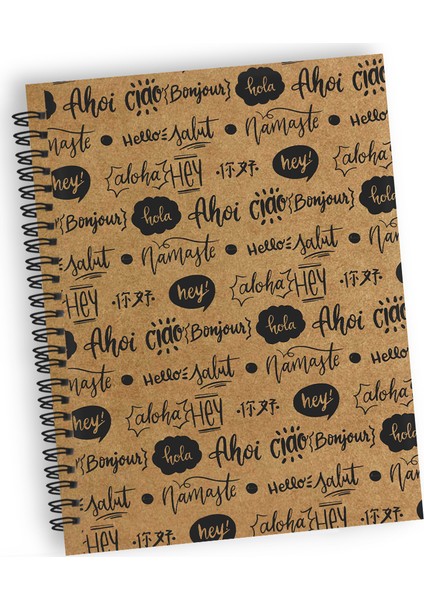 Ahoi ciao {Bonjour} hola Ahoi ciao
Namaste • Hello Salut • Namaste • Hello
hey! aloha HEY ·你好· hey! aloha
{Bonjour} hola Ahoi ciao {Bonjour} hola
Salut • Namaste • Hello Salut •
HEY ·你好· hey! aloha HEY ·你好·
Ahoi ciao {Bonjour} hola Ahoi ciao
Namaste • Hello Salut • Namaste •
hey! aloha HEY ·你好· hey! aloha
{Bonjour} hola Ahoi ciao {Bonjour} hola
Salut • Namaste • Hello Salut •
HEY ·你好· hey! aloha HEY ·你好·